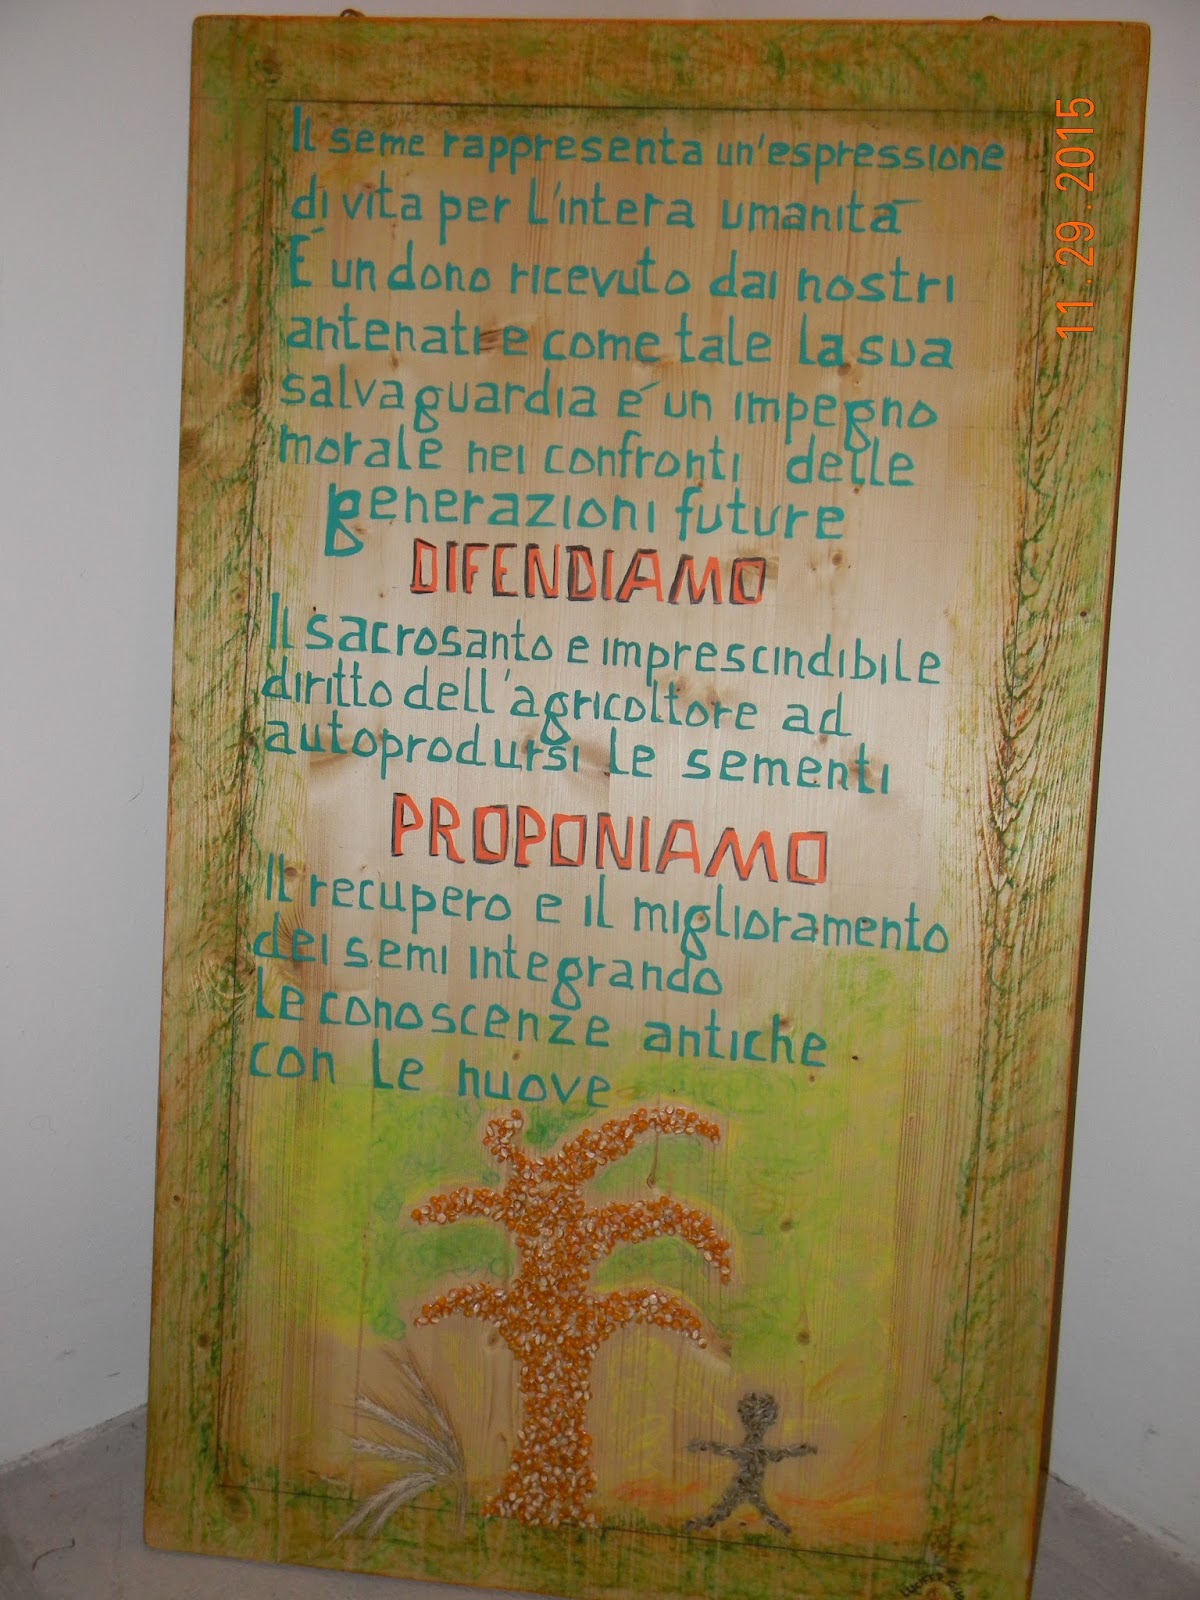 Il seme rappresenta un'espressione
di vita per l'intera umanità
É un dono ricevuto dai nostri
antenati e come tale la sua
salvaguardia é un impegno
morale nei confronti delle
generazioni future
DIFENDIAMO
Il sacrosanto e imprescindibile
diritto dell'agricoltore ad
autoprodursi le sementi
PROPONIAMO
Il recupero e il miglioramento
dei semi integrando
le conoscenze antiche
con le nuove
11.29.2015